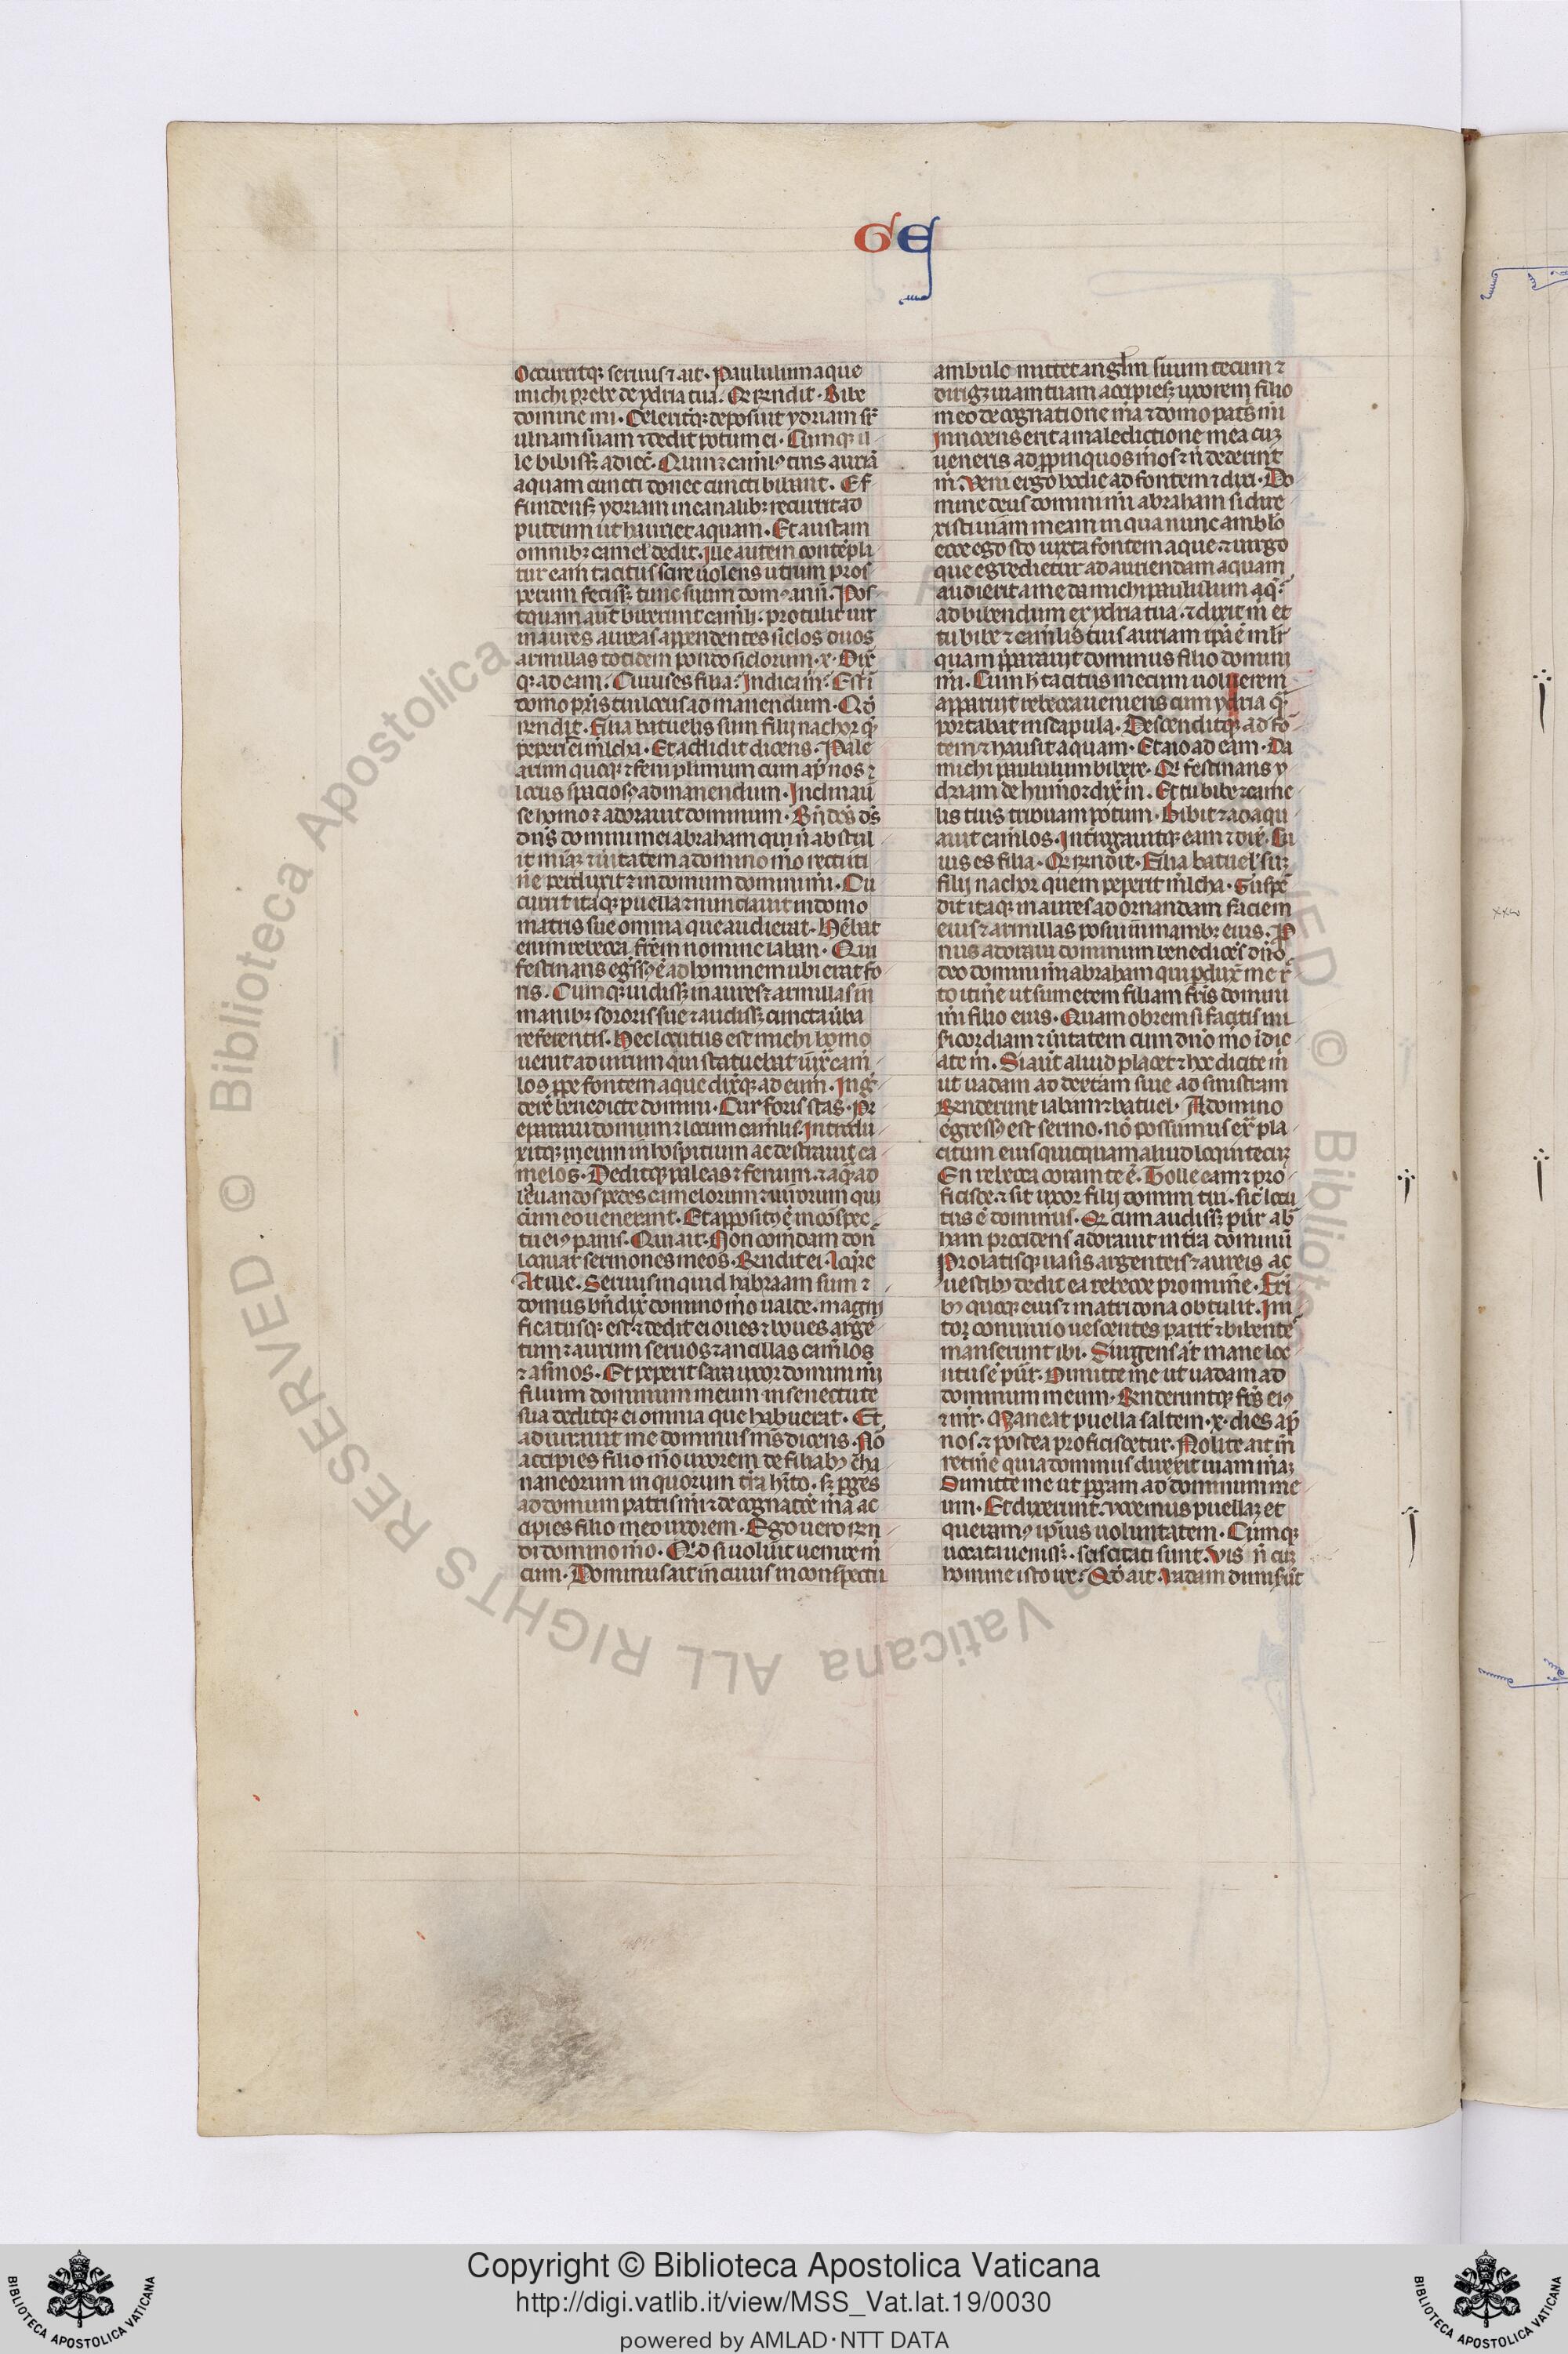 GE
Occurritq; seruus ⁊ ait. Paululum aque
michi prebe de ydria tua. Q̄ r̄ndit. Bibe
domine mi. Celeriterq; deposuit ydriam sr̄
ulnam suam ⁊ dedit potum ei. Cumq; il
le bibiss; adiec̄. Quin ⁊ camel' tuis auriā
aquam cuncti donec cuncti bibant. Ef
fundens; ydriam in canalib; recurrit ad
puteum ut hauriet aquam. Et austam
omnib; camel' dedit. Ille autem contēpla
tur eam tacitus scire uolens utrum pros
perum feciss; iter suum dom̄ an n̄. Pos
tquam aūt biberunt cameli. protulit uir
inaures aureas appendentes siclos duos
armillas totidem pondo siclorum .x. Dix̄
q; ad eam. Cuius es filia. Indica m̄. Est ī
domo pr̄is tui locus ad manendum. Q̄
r̄ndit. Filia batuelis sum filij nachor q̄
peperit ei melcha. Et addidit dicens. Pale
arum quoq; ⁊ feni plurimum cum ap̄ nos ⁊
locus spacios' ad manendum. Inclinau̅
se homo ⁊ adorauit dominum. Bn̄dc̄s dn̄s
dn̄s domini mei abraham qui n̄ abstul
it miām ⁊ u̅itatem a domino m̅o ⁊ recti iti
n̄e perduxit ⁊ in domum domini m̅i. Cu
currit itaq; puella ⁊ nunciauit in domo
matris sue omnia que audierat. Hēbat
enim rebecca fr̄em nomine laban. Qui
festinans egress' ē ad hominem ubi erat fo
ns. Cumq; uidiss; inaures ⁊ armillas in
manib; sororis sue ⁊ audiss; cuncta ūba
referentis. Hec locutus est michi homo
uenit ad uirum qui stabat iux̄ cam
los p̄pe fontem aque dix̄q; ad eum. Inḡ
dere benedicte domini. Cur foris stas. Pr
eparaui domum ⁊ locum camelis. Introdu
xitq; in eum in hospitium ac destrauit ca
melos. Deditq; paleas ⁊ fenum. ⁊ aq̄m ad
lauandos pedes camelorum ⁊ uirorum qui
cum eo uenerant. Et apposit' ē in cōspec
tu ei' panis. Qui ait. Non comedam don̄
loquar sermones meos. R̄ndit ei. loq̄re
At ille. Seruus inquid habraam sum ⁊
domus bn̄dix̄ domino m̅o ualde. magni
ficatusq; est. ⁊ dedit ei oues ⁊ boues argē
tum ⁊ aurum seruos ⁊ ancillas camelos
⁊ asinos. Et peperit sara uxor domini m̅i
filium dominum meum in senectute
sua deditq; ei omnia que habuerat. Et
adiurauit me dominus m̅s dicens. Nō
accipies filio m̅o uxorem de filiab' cha
naneorum in quorum tr̄a hīto. s; p̄ges
ad domum patris m̅i ⁊ de cognacōe m̅a ac
cipies filio meo uxorem. Ego uero r̄n
di domino m̅o. Q̄d si noluit uenire m̄
cum. Dominus ait in cuius in conspectu
ambulo mittet angl'm suum tecum ⁊
diriget uiam tuam accipies; uxorem filio
meo de cognatione m̅a ⁊ domo pat̄s m̅i
Innocens erit a maledictione mea cum
ueneris ad p̄pinquos m̅os ⁊ n̄ dederint
m̄. Veni ergo hodie ad fontem ⁊ dixi. Do
mine deus domini m̅i abraham si dire
xisti uiam meam in qua nunc amblo
ecce ego sto iuxta fontem aque. ⁊ uirgo
que egredietur ad auriendam aquam
audierit a me da michi paululum aq̄
ad bibendum ex ydria tua. ⁊ dixit m̄ et
tu bibe ⁊ camelis tuis auriam ip̄a ē mlr̄
quam p̄parauit dominus filio domini
m̅i. Cum h̄ tacitus mecum uoluerem
apparuit rebecca ueniens cum ydria q̄
portabat in scapula. Descenditq; ad fō
tem ⁊ hausit aquam. Et aio ad eam. Da
michi paululum bibere. Q̄ festinans y
driam de humero dix̄ m̄. Et tu bibe ⁊ came
lis tuis tribuam potum. Bibi ⁊ adaqu
auit camelos. Int̄rogauitq; eam ⁊ dixi. Cu
ius es filia. Q̄ r̄ndit. Filia batuel' sum
filij nachor quem peperit melcha. Suspē
dit itaq; inaures ad ornandam faciem
eius ⁊ armillas posui in manib; eius. P
nus adoraui dominum benedicens dn̄o
deo domini m̅i abraham qui pdux̄ me r̄
to itin̄e ut sumerem filiam fr̄is domini
m̅i filio eius. Quam obrem si facitis mi
sericordiam ⁊ u̅itatem cum dn̄o m̅o īdic
ate m̄. Si aūt aliud placet ⁊ hoc dicite m̄
ut uadam ad dextram siue ad sinistram
R̄nderunt laban ⁊ batuel. A domino
egress' est sermo. nō possumus ex̄ pla
citum eius quicquam aliud loqui tecum
En rebecca coram te ē. Tolle eam ⁊ pro
ficisce. ⁊ sit uxor filij domini tui. sic̄ locu
tus ē dominus. Q̄ cum audiss; puer ab
ham procidens adorauit in tr̄a dominū
Prolatisq; uasis argenteis ⁊ aureis ac
uestib' dedit ea rebecce pro mun̄e. Fr̄i
b' quoq; eius ⁊ matri dona obtulit. Ini
to; conuiuio uescentes parit̄ ⁊ bibente
manserunt ibi. Surgens aūt mane loc
utus ē puer. Dimitte me ut uadam ad
dominum meum. R̄nderuntq; fr̄s ei'
⁊ mr̄. Maneat puella saltem .x. dies ap̄
nos. ⁊ postea proficiscetur. Nolite ait m̄
retin̄e quia dominus direxit uiam m̅am
Dimitte me ut p̄gam ad dominum me
um. Et dixerunt. uocemus puellam et
queram' ip̄ius uoluntatem. Cumq;
uocata ueniss;. sciscitati sunt. Vis n̄ cum
homine isto ire. Q̄ ait. Vadam dimiser̄t
Copyright © Biblioteca Apostolica Vaticana
http://digi.vatlib.it/view/MSS_Vat.lat.19/0030
powered by AMLAD·NTT DATA